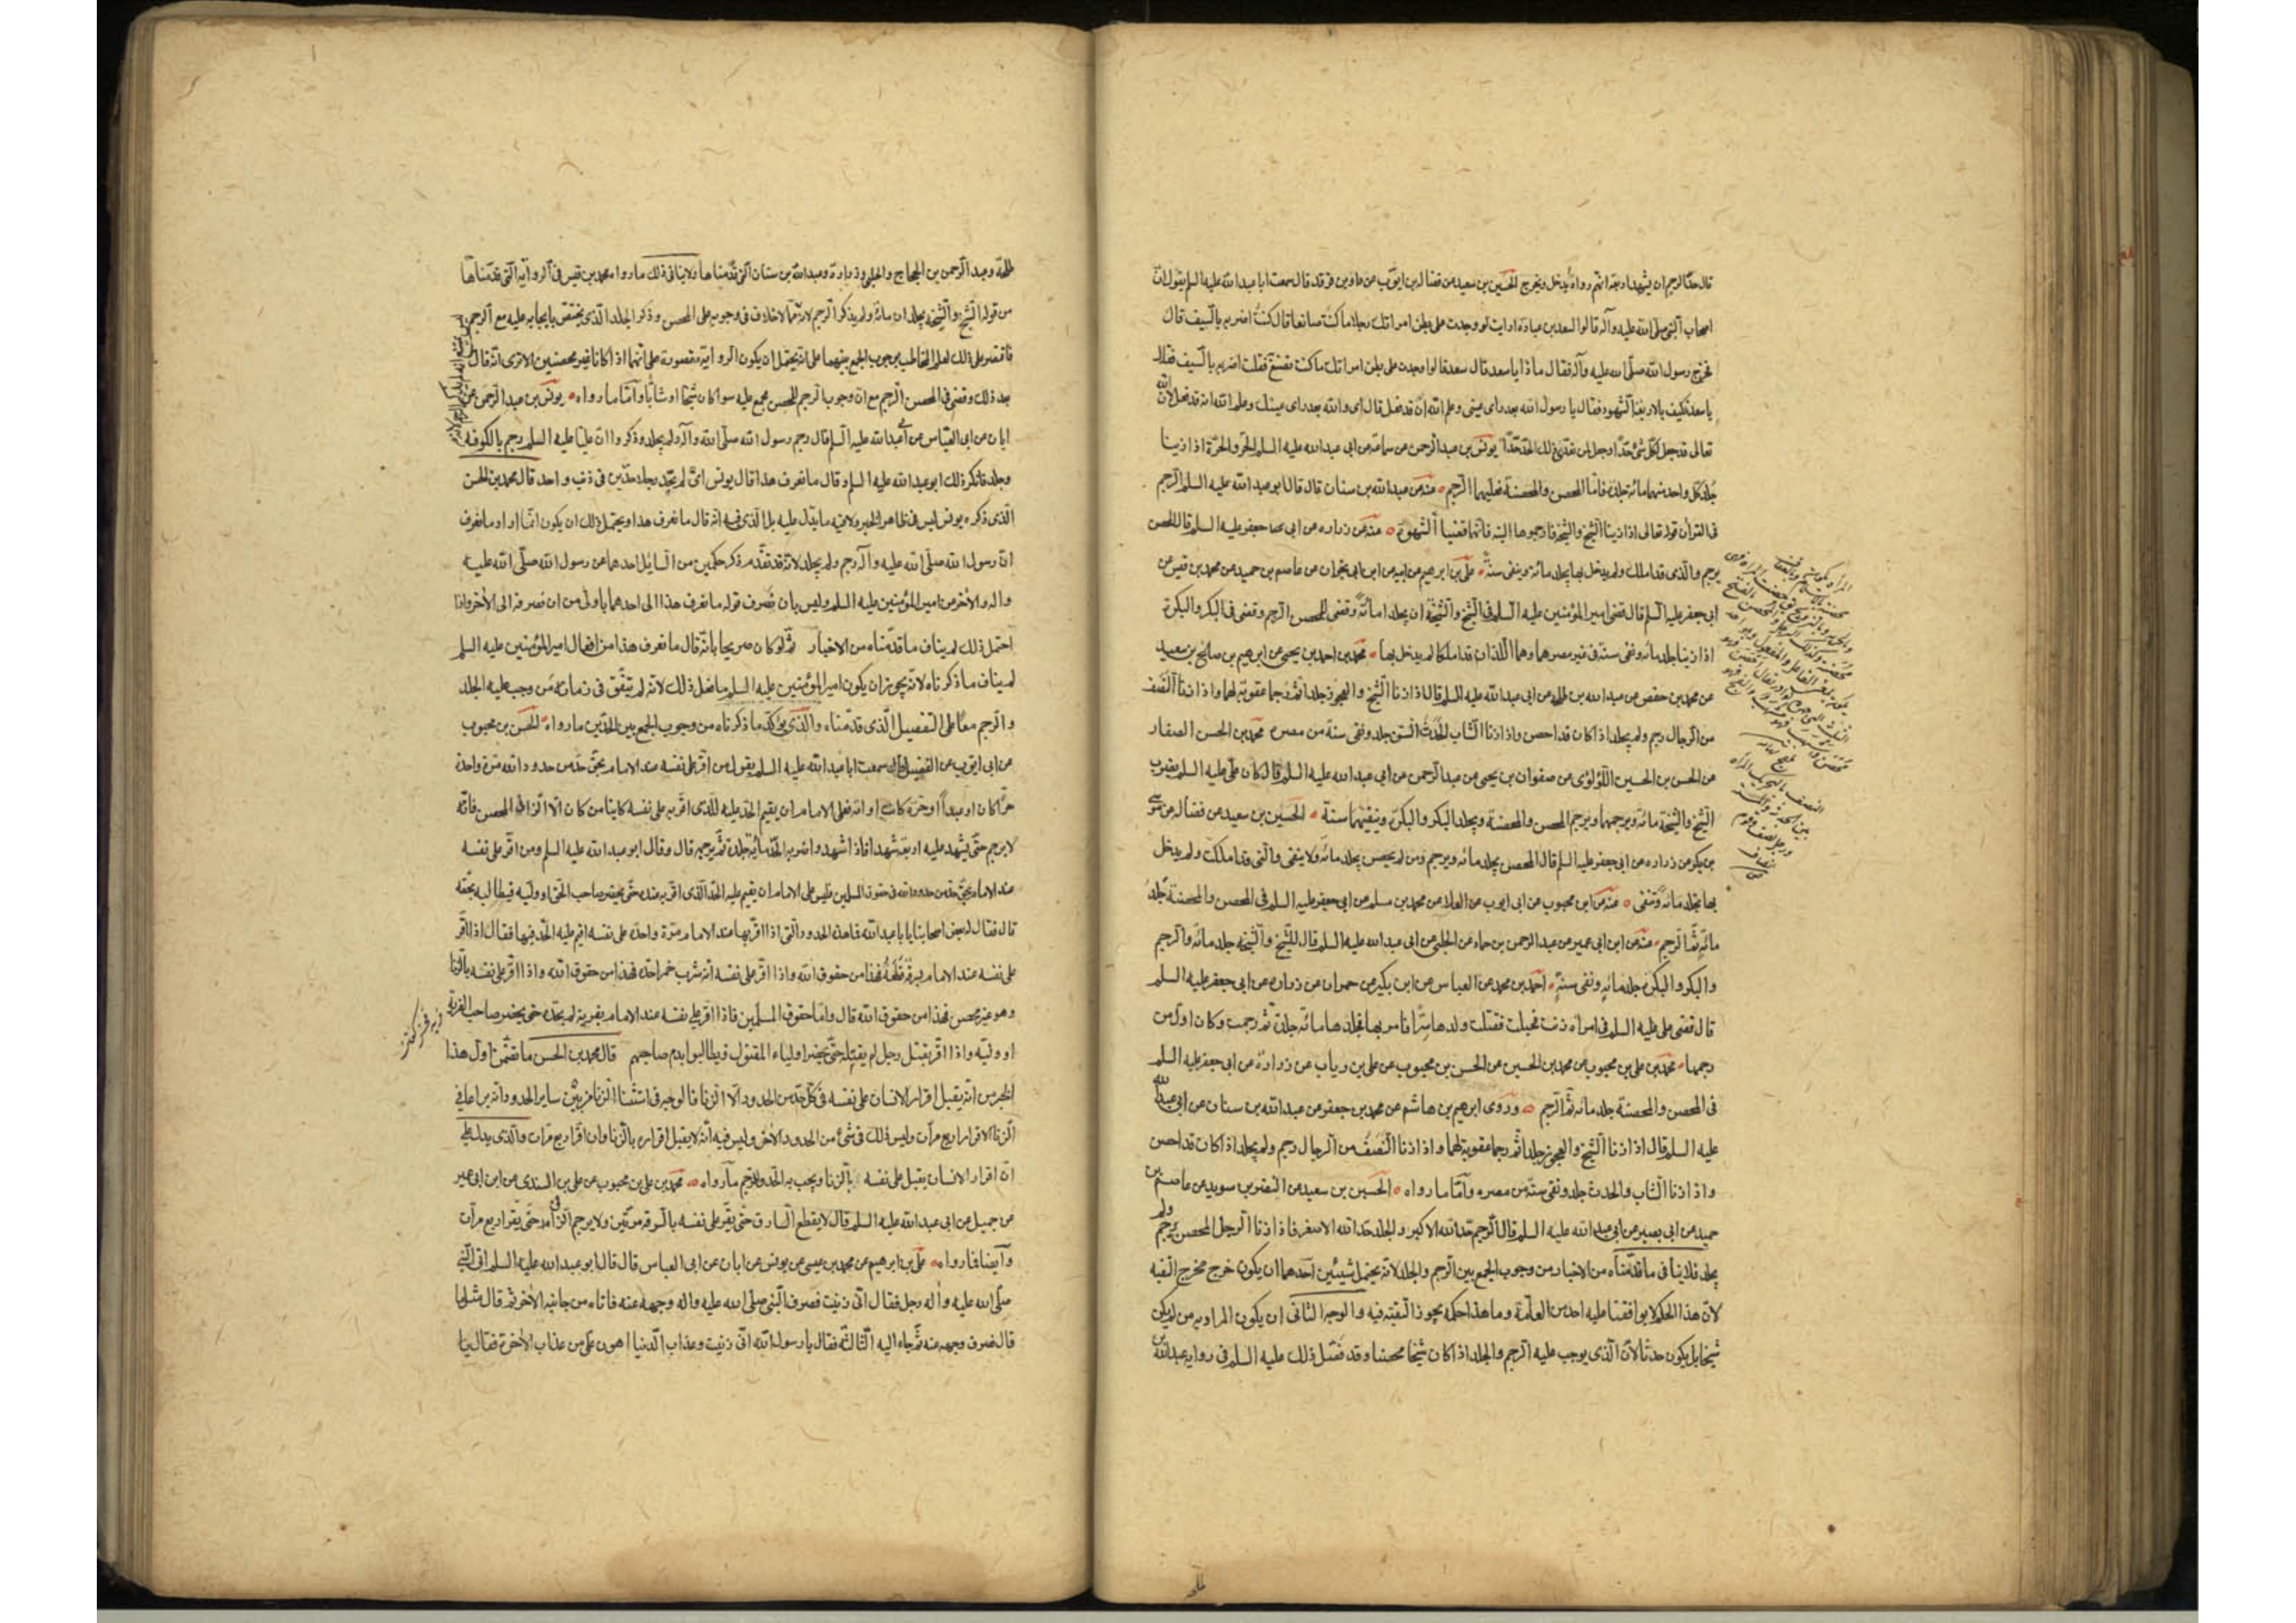 قال حدّ الرجم ان يشهد اربعة انهم رواه يدخل ويخرج الحسين بن سعيد عن فضالة بن ايوب عن داود بن فرقد قال سمعت ابا عبد الله عليه السلم يقول انّ
اصحاب النبي صلّى الله عليه وآله قالوا لسعد بن عبادة ارايت لو وجدت على بطن امراتك رجلا ما كنت صانعا قال كنت اضربه بالسيف قال
فخرج رسول الله صلّى الله عليه وآله فقال ماذا يا سعد قال سعد قالوا لو وجدت على بطن امراتك ما كنت تصنع فقلت اضربه بالسيف فقال
يا سعد فكيف بالاربعة الشهود فقال يا رسول الله بعد راى عينى وعلم الله انّه قد فعل قال اى والله بعد راى عينك وعلم الله انه قد فعل لان الله
تعالى قد جعل لكل شئ حدّا وجعل لمن تعدّى ذلك الحدّ حدّا يونس بن عبد الرحمن عن سماعة عن ابى عبد الله عليه السلم الحر والحرّة اذا زنيا
جلد كل واحد منهما مائة جلدة فامّا المحصن والمحصنة فعليهما الرجم عنه عن عبد الله بن سنان قال قال ابو عبد الله عليه السلم الرجم
فى القران قوله تعالى اذا زنيا الشيخ والشيخة فارجموها البتة فانهما قضيا الشهوة عنه عن زراره عن ابى جعفر عليه السلم قال المحصن
يرجم والذى قد املك ولم يدخل بها يجلد مائة وينفى سنة علىّ بن ابرهيم عن ابيه عن ابن ابى نجران عن عاصم بن حميد عن محمد بن قيس عن
ابى جعفر عليه السلم قال قضى امير المؤمنين عليه السلم فى الشيخ والشيخة ان يجلدا مائة وقضى للمحصن الرجم وقضى فى البكر والبكرة
اذا زنيا جلد مائة ونفى سنة فى غير مصرهما وهما اللذان قد املكا لم يدخل بها محمد بن احمد بن يحيى عن ابرهيم بن صالح بن سعيد
عن محمد بن حفص عن عبد الله بن طلحة عن ابى عبد الله عليه السلم قال اذا زنا الشيخ والعجوز جلدا ثم رجما عقوبة لهما واذا زنا النصف
من الرجال رجم ولم يجلد اذا كان قد احصن واذا زنا الشاب الحدث السن جلد ونفى سنة من مصره محمد بن الحسن الصفار
عن الحسن بن الحسين اللؤلؤى عن صفوان بن يحيى عن عبد الرحمن عن ابى عبد الله عليه السلم قال كان علىّ عليه السلم يضرب
الشيخ والشيخة مائة ويرجمهما ويرجم المحصن والمحصنة ويجلد البكر والبكرة وينفيهما سنة الحسين بن سعيد عن فضالة عن موسى
بن بكر عن زراره عن ابى جعفر عليه السلم قال المحصن يجلد مائة ويرجم ومن لم يحصن يجلد مائة ولا ينفى والتى قد املكت ولم يدخل
بها تجلد مائة وتنفى عنه عن ابن محبوب عن ابى ايوب عن العلا عن محمد بن مسلم عن ابى جعفر عليه السلم فى المحصن والمحصنة جلد
مائة ثم الرجم عنه عن ابن ابى عمير عن عبد الرحمن بن حماد عن الحلبى عن ابى عبد الله عليه السلم قال للشيخ والشيخة جلد مائة والرجم
والبكر والبكرة جلد مائة ونفى سنة احمد بن محمد عن العباس عن ابن بكير عن حمران عن زراره عن ابى جعفر عليه السلم
قال قضى على عليه السلم فى امراة زنت فحبلت فقتلت ولدها سرّا فامر بها فجلدها مائة جلدة ثم رجمت وكان اول من
رجمها محمد بن على بن محبوب عن محمد بن الحسين عن الحسن بن محبوب عن على بن رياب عن زرارة عن ابى جعفر عليه السلم
فى المحصن والمحصنة جلد مائة ثم الرجم وروى ابرهيم بن هاشم عن محمد بن جعفر عن عبد الله بن سنان عن ابى عبد الله
عليه السلم قال اذا زنا الشيخ والعجوز جلدا ثم رجما عقوبة لهما واذا زنا النصف من الرجال رجم ولم يجلد اذا كان قد احصن
واذا زنا الشاب والحدث جلد ونفى سنة من مصره وامّا ما رواه الحسين بن سعيد عن النضر بن سويد عن عاصم بن
حميد عن ابى بصير عن ابى عبد الله عليه السلم قال الرجم حدّ الله الاكبر والجلد حدّ الله الاصغر فاذا زنا الرجل المحصن يرجم ولم
يجلد فلا ينافى ما قدّمناه من الاخبار من وجوب الجمع بين الرجم والجلد لانه يحتمل شيئين احدهما ان يكون خرج مخرج التقية
لانّ هذا الحكم لا يوافقنا عليه احد من العامّة وما هذا حكمه يجوز التقية فيه والوجه الثانى ان يكون المراد به من لم يكن
شيخا بل يكون حدثا لانّ الذى يوجب عليه الرجم والجلد اذا كان شيخا محصنا وقد فصّل ذلك عليه السلم فى رواية عبد الله بن
طلحة وعبد الرحمن بن الحجاج والحلبى وزرارة وعبد الله بن سنان التى قدّمناها ولا ينافى ذلك ما رواه محمد بن قيس فى الرواية التى قدّمناها
من قوله الشيخ والشيخة يجلدان مائة ولم يذكر الرجم لانه ممّا لا خلاف فى وجوبه على المحصن وذكر الجلد الذى يختص بايجابه عليه مع الرجم
فاقتصر على ذلك لعلم المخاطب بوجوب الجمع بينهما على انّه يحتمل ان يكون الرواية مقصورة على انهما اذا كانا غير محصنين الا ترى انّه قال
بعد ذلك وقضى فى المحصن الرجم مع انّ وجوب الرجم للمحصن مجمع عليه سوا كان شيخا او شابّا وامّا ما رواه يونس بن عبد الرحمن عن
ابان عن ابى العباس عن ابى عبد الله عليه السلم قال رجم رسول الله صلّى الله وآله ولم يجلد وذكروا انّ عليّا عليه السلم رجم بالكوفه
وجلد فانكر ذلك ابو عبد الله عليه السلم وقال ما نعرف هذا قال يونس اىّ لم يحدّ رجلا حدّين فى ذنب واحد قال محمد بن الحسن
الذى ذكره يونس ليس فى ظاهر الخبر ولا فيه ما يدل عليه بل الذى فيه انه قال ما نعرف هذا ويحتمل ذلك ان يكون انما اراد ما نعرف
انّ رسول الله صلّى الله عليه وآله رجم ولم يجلد لانه قد تقدّم ذكر حكمين من السايل احدهما عن رسول الله صلّى الله عليه
واله والاخر عن امير المؤمنين عليه السلم وليس بان نصرف قوله ما نعرف هذا الى احدهما باولى من ان نصرفه الى الاخر واذا
احتمل ذلك لم يناف ما قدّمناه من الاخبار ثم لو كان صريحا بانّه قال ما نعرف هذا من افعال امير المؤمنين عليه السلم
لم يناف ما ذكرناه لانه يجوز ان يكون امير المؤمنين عليه السلم ما فعل ذلك لانه لم يتفق فى زمانه من وجب عليه الجلد
والرجم معا على التفصيل الذى قدّمناه والذى يؤكّد ما ذكرناه من وجوب الجمع بين الحدّين ما رواه الحسن بن محبوب
عن ابى ايوب عن الفضيل قال سمعت ابا عبد الله عليه السلم يقول من اقرّ على نفسه عند الامام بحق حدّ من حدود الله مرّة واحدة
حرّا كان او عبدا او حرّة كانت او امة فعلى الامام ان يقيم الحدّ عليه للذى اقرّ به على نفسه كاينا من كان الا الزانى المحصن فانه
لا يرجم حتى يشهد عليه اربعة شهدا فاذا شهدوا ضربه الحدّ مائة جلدة ثم يرجمه قال وقال ابو عبد الله عليه السلم ومن اقر على نفسه
عند الامام بحق حدّ من حدود الله فى حقوق المسلمين فليس على الامام ان يقيم عليه الحدّ الذى اقر به عنده حتى يحضر صاحب الحق او وليّه فيطالبه بحقّه
قال فقال له بعض اصحابنا يا با عبد الله فما هذه الحدود التى اذا اقر بها عند الامام مرّة واحدة على نفسه اقيم عليه الحدّ فيها فقال اذا اقرّ
على نفسه عند الامام بسرقة قطعه فهذا من حقوق الله واذا اقرّ على نفسه انه شرب خمرا حدّه فهذا من حقوق الله واذا اقرّ على نفسه بالزنا
وهو غير محصن فهذا من حقوق الله قال وامّا حقوق المسلمين فاذا اقر على نفسه عند الامام بفرية لم يحدّه حتى يحضر صاحب الفرية
او وليّه واذا اقرّ بقتل رجل لم يقتله حتى يحضر اولياء المقتول فيطالبوا بدم صاحبهم قال محمد بن الحسن ما تضمّن اول هذا
الخبر من انّه يقبل اقرار الانسان على نفسه فى كل حدّ من الحدود الا الزنا فالوجه فى استثنا الزنا من بين ساير الحدود انّه يراعا فى
الزنا الاقرار اربع مرّات وليس ذلك فى شئ من الحدود الاخر وليس فيه انّه لا يقبل اقراره بالزنا وان اقرّ اربع مرّات والذى يدل على
انّ اقرار الانسان يقبل على نفسه بالزنا ويجب به الحدّ والرجم ما رواه محمد بن على بن محبوب عن على بن السندى عن ابن ابى عمير
عن جميل عن ابى عبد الله عليه السلم قال لا يقطع السارق حتى يقرّ على نفسه بالسرقة مرّتين ولا يرجم الزانى حتى يقرّ اربع مرّات
وايضا فما رواه علىّ بن ابرهيم عن محمد بن عيسى عن يونس عن ابان عن ابى العباس قال قال ابو عبد الله عليه السلم اتى النبى
صلّى الله عليه واله رجل فقال انّى زنيت فصرف النبى صلّى الله عليه واله وجهه عنه فاتاه من جانبه الاخر ثم قال مثلها
قال فصرف وجهه عنه ثم جاء اليه الثالثة فقال يا رسول الله انّى زنيت وعذاب الدنيا اهون علىّ من عذاب الاخرة فقال يا